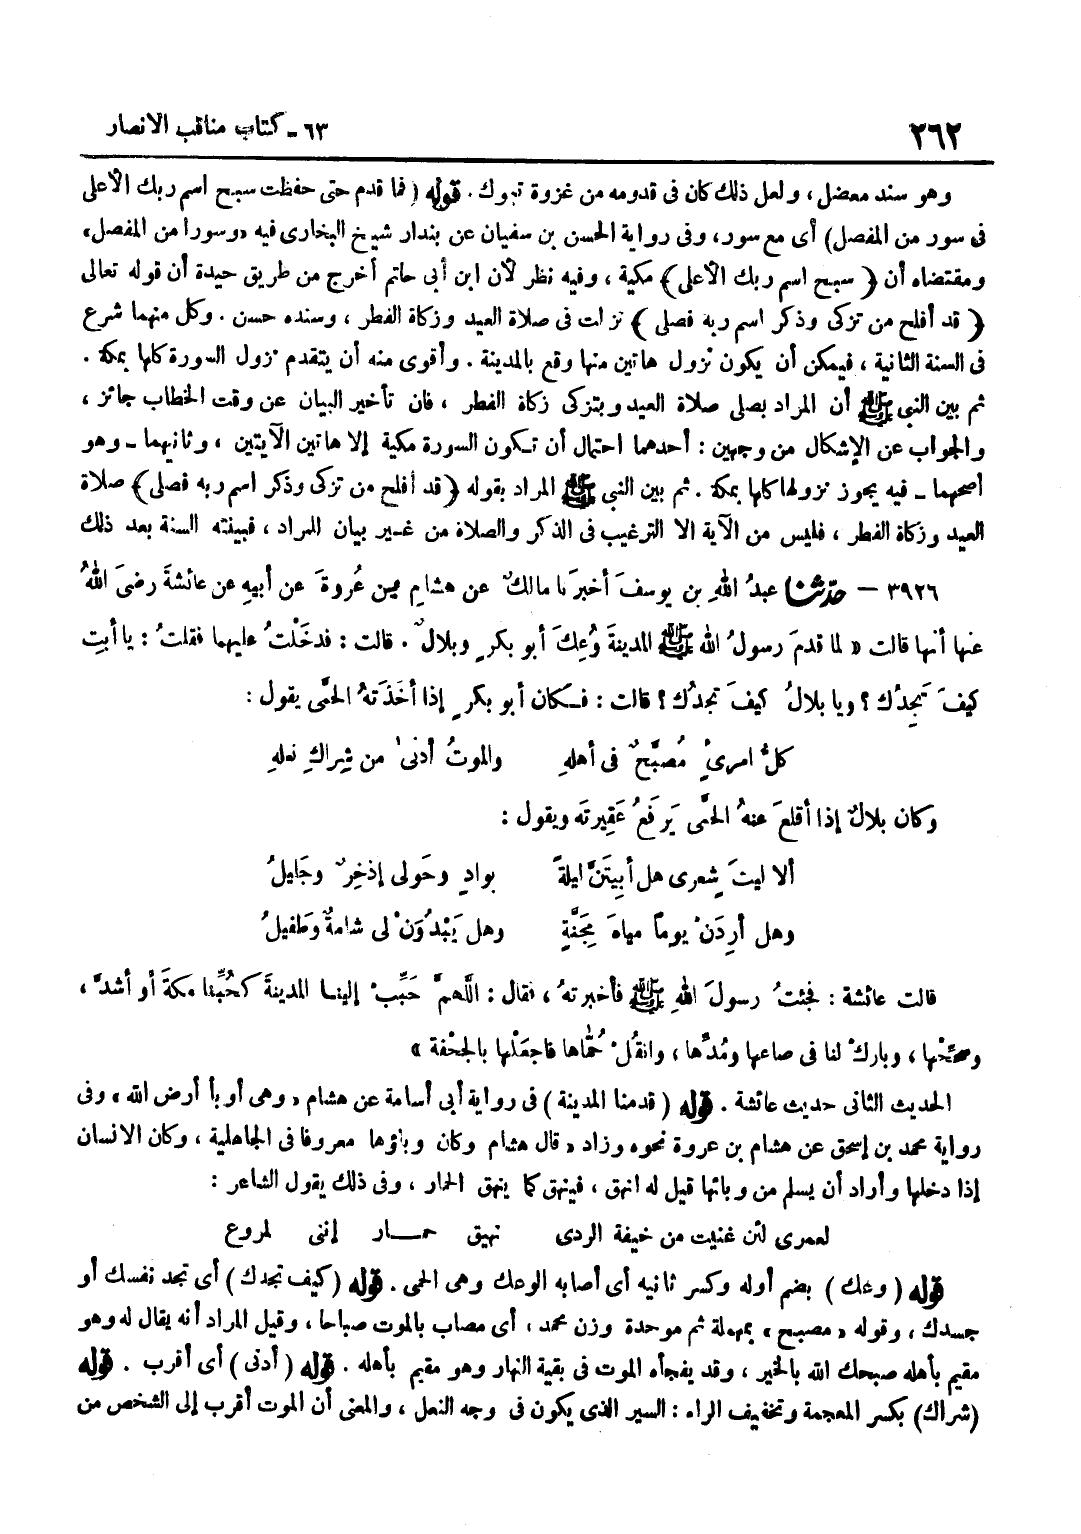 ٢٦٢
٦٣ - كتاب مناقب الانصار
وهو سند معضل ، ولعل ذلك كان فى قدومه من غزوة تبوك . قوله ( فما قدم حتى حفظت سبح اسم ربك الأعلى
فى سور من المفصل) أى مع سور، وفى رواية الحسن بن سفيان عن بندار شيخ البخارى فيه «وسورا من المفصل»
ومقتضاه أن ( سبح اسم ربك الأعلى ) مكية ، وفيه نظر لأن ابن أبى حاتم أخرج من طريق حيدة أن قوله تعالى
( قد أفلح من تزكى وذكر اسم ربه فصلى ) نزلت فى صلاة العيد وزكاة الفطر ، وسنده حسن . وكل منهما شرع
فى السنة الثانية ، فيمكن أن يكون نزول هاتين منها وقع بالمدينة . وأقوى منه أن يتقدم نزول السورة كلها بمكة .
ثم بين النبى ﷺ أن المراد بصلى صلاة العيد وبتزكى زكاة الفطر ، فان تأخير البيان عن وقت الخطاب جائز ،
والجواب عن الإشكال من وجهين : أحدهما احتمال أن تكون السورة مكية إلا هاتين الآيتين ، وثانيهما ـ وهو
أصحهما ـ فيه يجوز نزولها كلها بمكة . ثم بين النبى ﷺ المراد بقوله ( قد أفلح من تزكى وذكر اسم ربه فصلى ) صلاة
العيد وزكاة الفطر ، فليس من الآية الا الترغيب فى الذكر والصلاة من غير بيان للمراد ، فبينته السنة بعد ذلك
٣٩٢٦ — حدّثنا عبدُ اللهِ بن يوسفَ أخبرَنا مالكٌ عن هشامِ بن عُروةَ عن أبيهِ عن عائشةَ رضىَ اللهُ
عنها أنها قالت « لما قدمَ رسولُ الله ﷺ المدينةَ وُعِكَ أبو بكرٍ وبلالٌ . قالت : فدخَلْتُ عليهما فقلتُ : يا أبتِ
كيفَ تَجِدُك ؟ ويا بلالُ كيفَ تجدُك ؟ قالت : فكان أبو بكرٍ إذا أخَذَتهُ الحمَّى يقول :
كلُّ امرىءٍ مُصبَّحٌ فى أهلهِ والموتُ أدنىٰ من شِراكِ نعله
وكان بلالٌ إذا أقلعَ عنهُ الحمَّى يَرفَعُ عَقِيرتَه ويقول :
ألا ليتَ شِعرى هل أبِيتَنَّ ليلةً بوادٍ وحَولى إذخِرٌ وجَليلُ
وهل أرِدَنْ يوماً مياهَ مِجَنَّةٍ وهل يَبْدُوَنْ لى شامةٌ وطَفيلُ
قالت عائشة : فجئتُ رسولَ اللهِ ﷺ فأخبرتهُ ، فقال : اللّهمَّ حَبِّبْ إلينا المدينةَ كحُبِّنا مكةَ أو أشدَّ ،
وصحِّحْها ، وبارِكْ لنا فى صاعها ومُدِّها ، وانقُلْ حُمَّاها فاجعَلْها بالجحْفة »
الحديث الثانى حديث عائشة . قوله ( قدمنا المدينة ) فى رواية أبى أسامة عن هشام « وهى أوبأ أرض الله » وفى
رواية محمد بن إسحق عن هشام بن عروة نحوه وزاد « قال هشام وكان وباؤها معروفا فى الجاهلية ، وكان الانسان
إذا دخلها وأراد أن يسلم من وبائها قيل له انهق ، فينهق كما ينهق الحمار ، وفى ذلك يقول الشاعر :
لعمرى لئن غنيت من خيفة الردى نهيق حمـــار إننى لمروع
قوله ( وعك ) بضم أوله وكسر ثانيه أى أصابه الوعك وهى الحمى . قوله ( كيف تجدك ) أى تجد نفسك أو
جسدك ، وقوله « مصبح » بمهملة ثم موحدة وزن محمد ، أى مصاب بالموت صباحا ، وقيل المراد أنه يقال له وهو
مقيم بأهله صبحك الله بالخير ، وقد يفجأه الموت فى بقية النهار وهو مقيم بأهله . قوله ( أدنى ) أى أقرب . قوله
(شراك) بكسر المعجمة وتخفيف الراء : السير الذى يكون فى وجه النعل ، والمعنى أن الموت أقرب إلى الشخص من